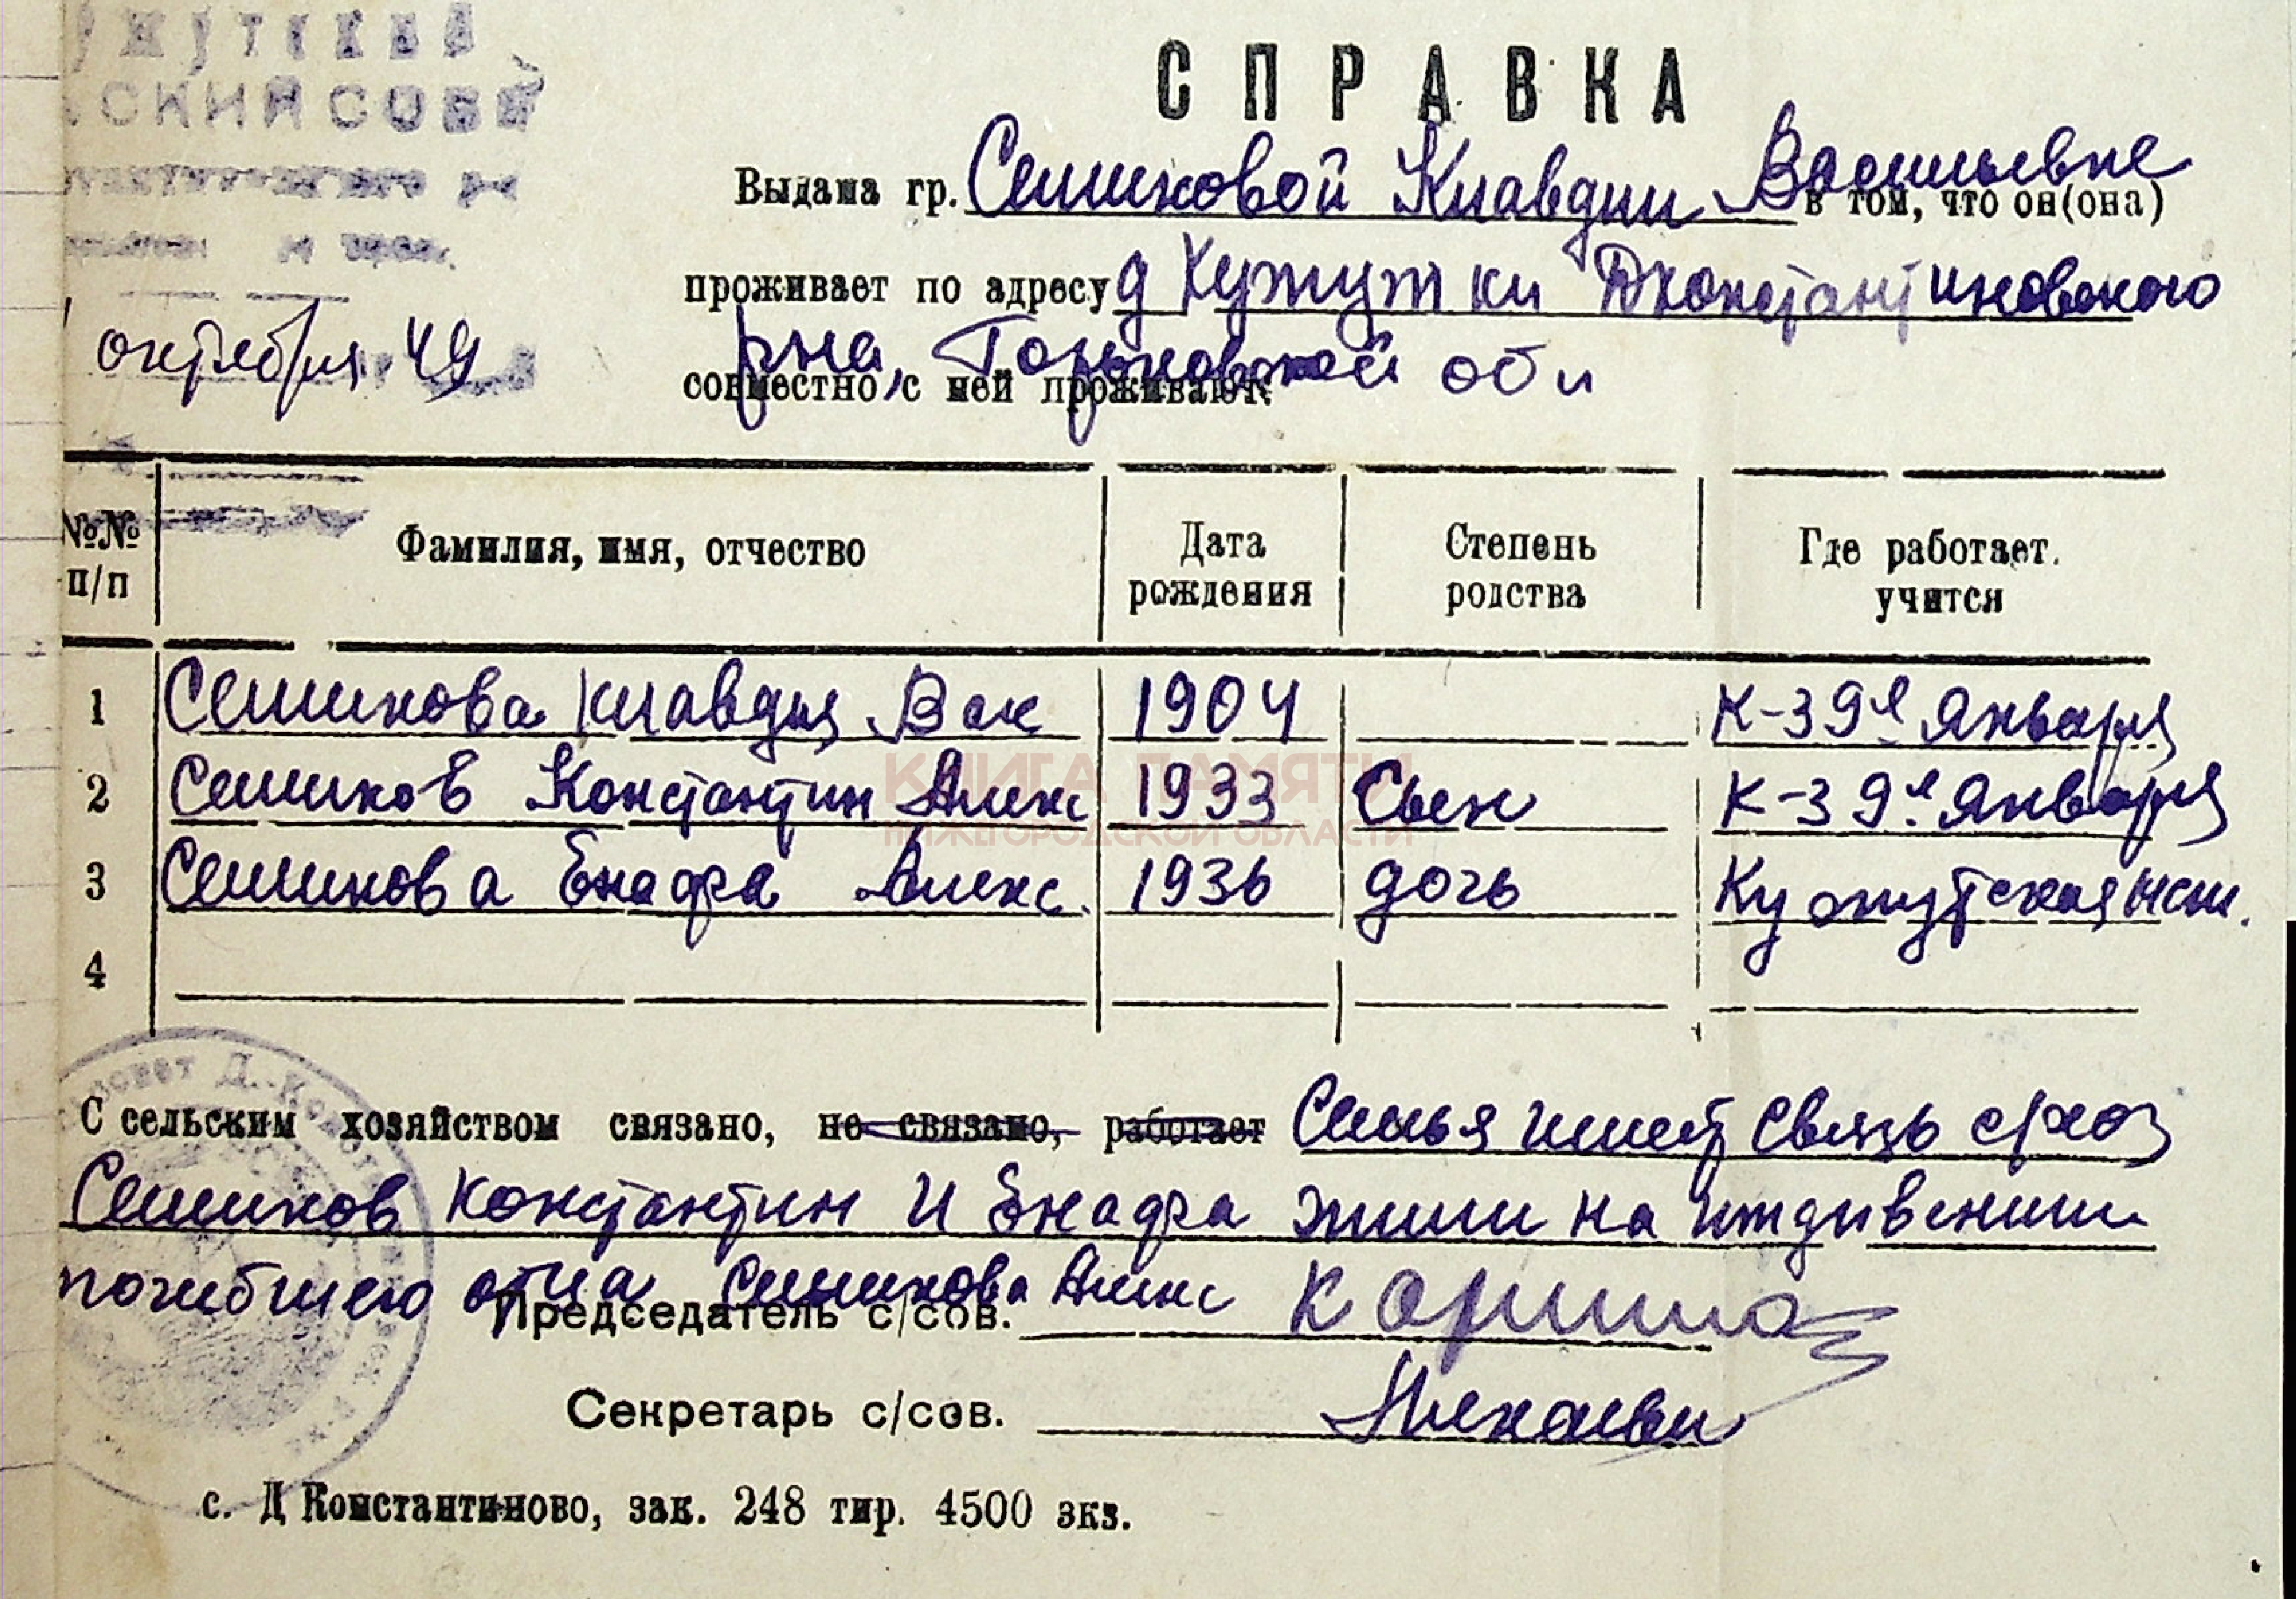 СПРАВКА
Выдана гр. Сешиковой Клавдии Васильевне в том, что он(она)
проживает по адресу д Кужутки Дконстантиновского
р-на, Горьковской обл
совместно с ней проживают:
октября 49
№№ п/п Фамилия, имя, отчество Дата рождения Степень родства Где работает. учится
1 Сешикова Клавдия Вас 1904 К-з 9е Января
2 Сешиков Константин Алекс 1933 Сын К-з 9е Января
3 Сешикова Енафа Алекс. 1936 дочь Кужутская нсш.
4
КНИГА ПАМЯТИ
НИЖЕГОРОДСКОЙ ОБЛАСТИ
С сельским хозяйством связано, не связано, работает Семья имеет связь с/хоз
Сешиков Константин и Енафа жили на иждивении
погибшего отца Сешикова Алекс
Председатель с/сов.
Секретарь с/сов.
с. Д Константиново, зак. 248 тир. 4500 экз.